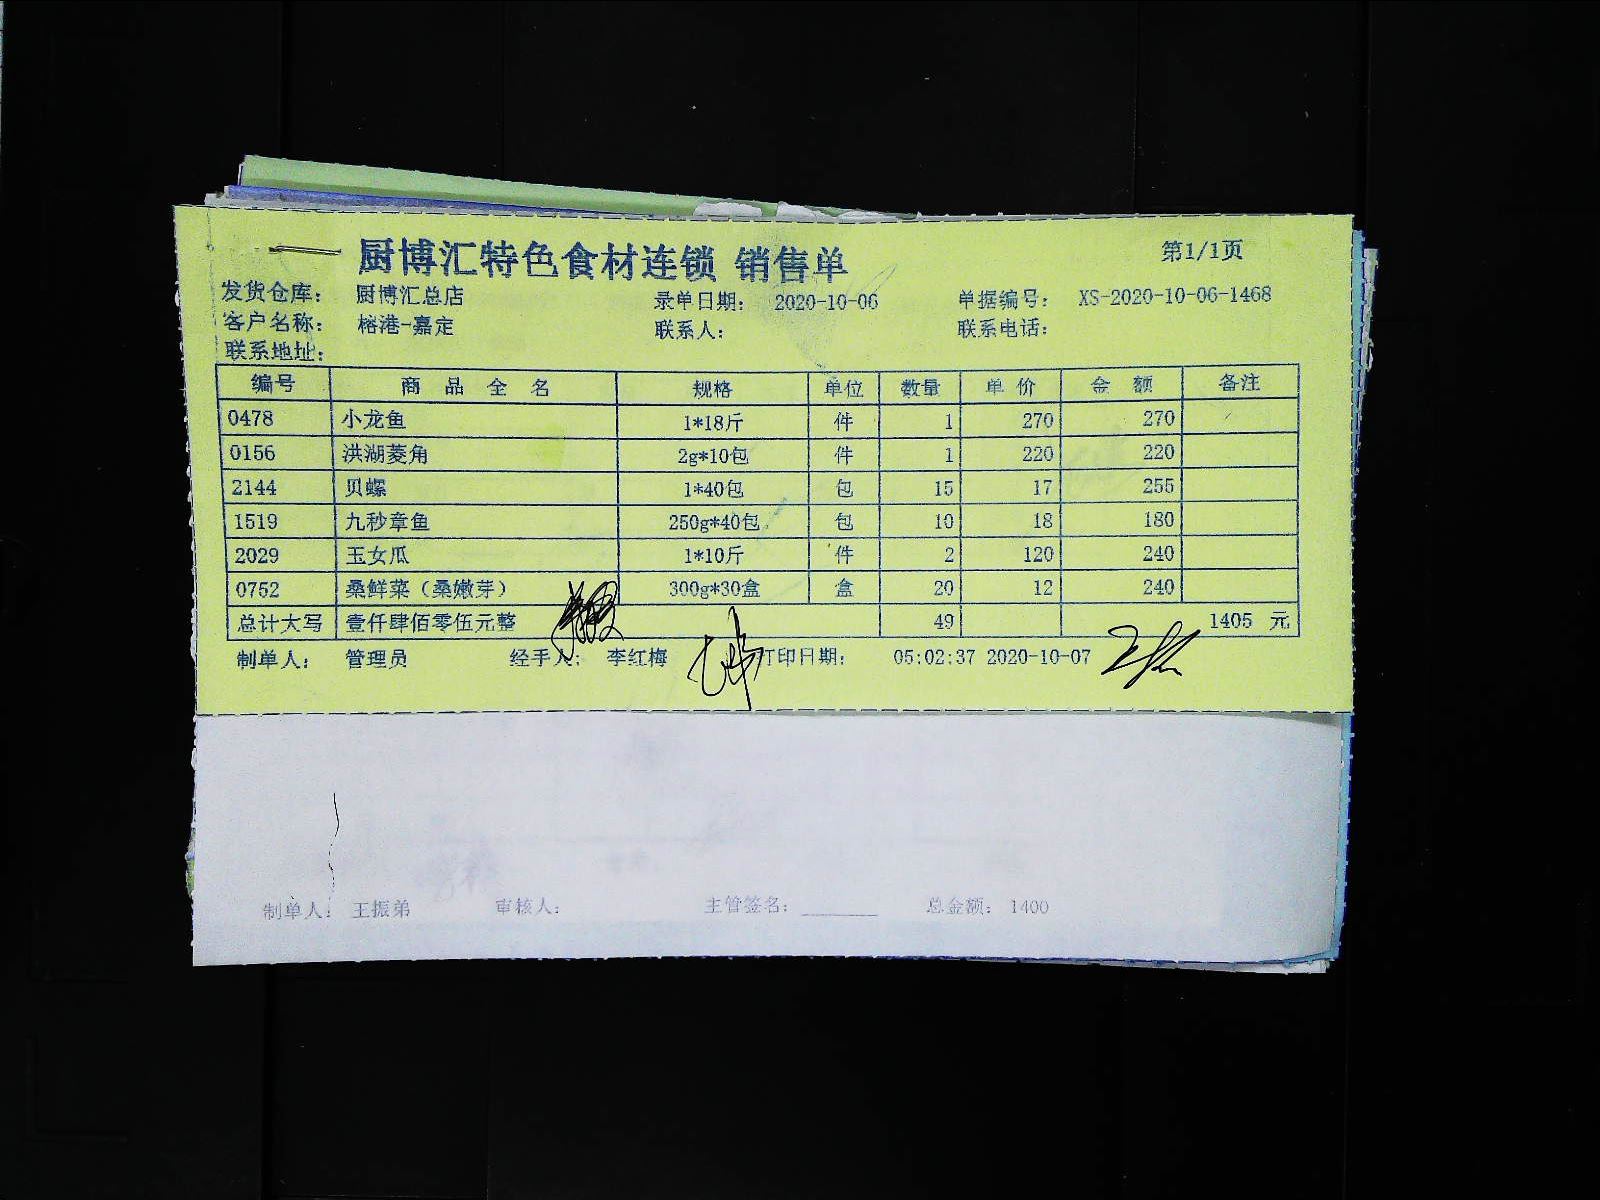 厨博汇特色食材连锁 销售单 第1/1页
发货仓库： 厨博汇总店 录单日期： 2020-10-06 单据编号： XS-2020-10-06-1468
客户名称： 榕港-嘉定 联系人： 联系电话：
联系地址：
编号 商品全名 规格 单位 数量 单价 金额 备注
0478 小龙鱼 1*18斤 件 1 270 270
0156 洪湖菱角 2g*10包 件 1 220 220
2144 贝螺 1*40包 包 15 17 255
1519 九秒章鱼 250g*40包 包 10 18 180
2029 玉女瓜 1*10斤 件 2 120 240
0752 桑鲜菜（桑嫩芽） 300g*30盒 盒 20 12 240
总计大写 壹仟肆佰零伍元整 49 1405 元
制单人： 管理员 经手人： 李红梅 打印日期： 05:02:37 2020-10-07
制单人： 王振弟 审核人： 主管签名： 总金额： 1400